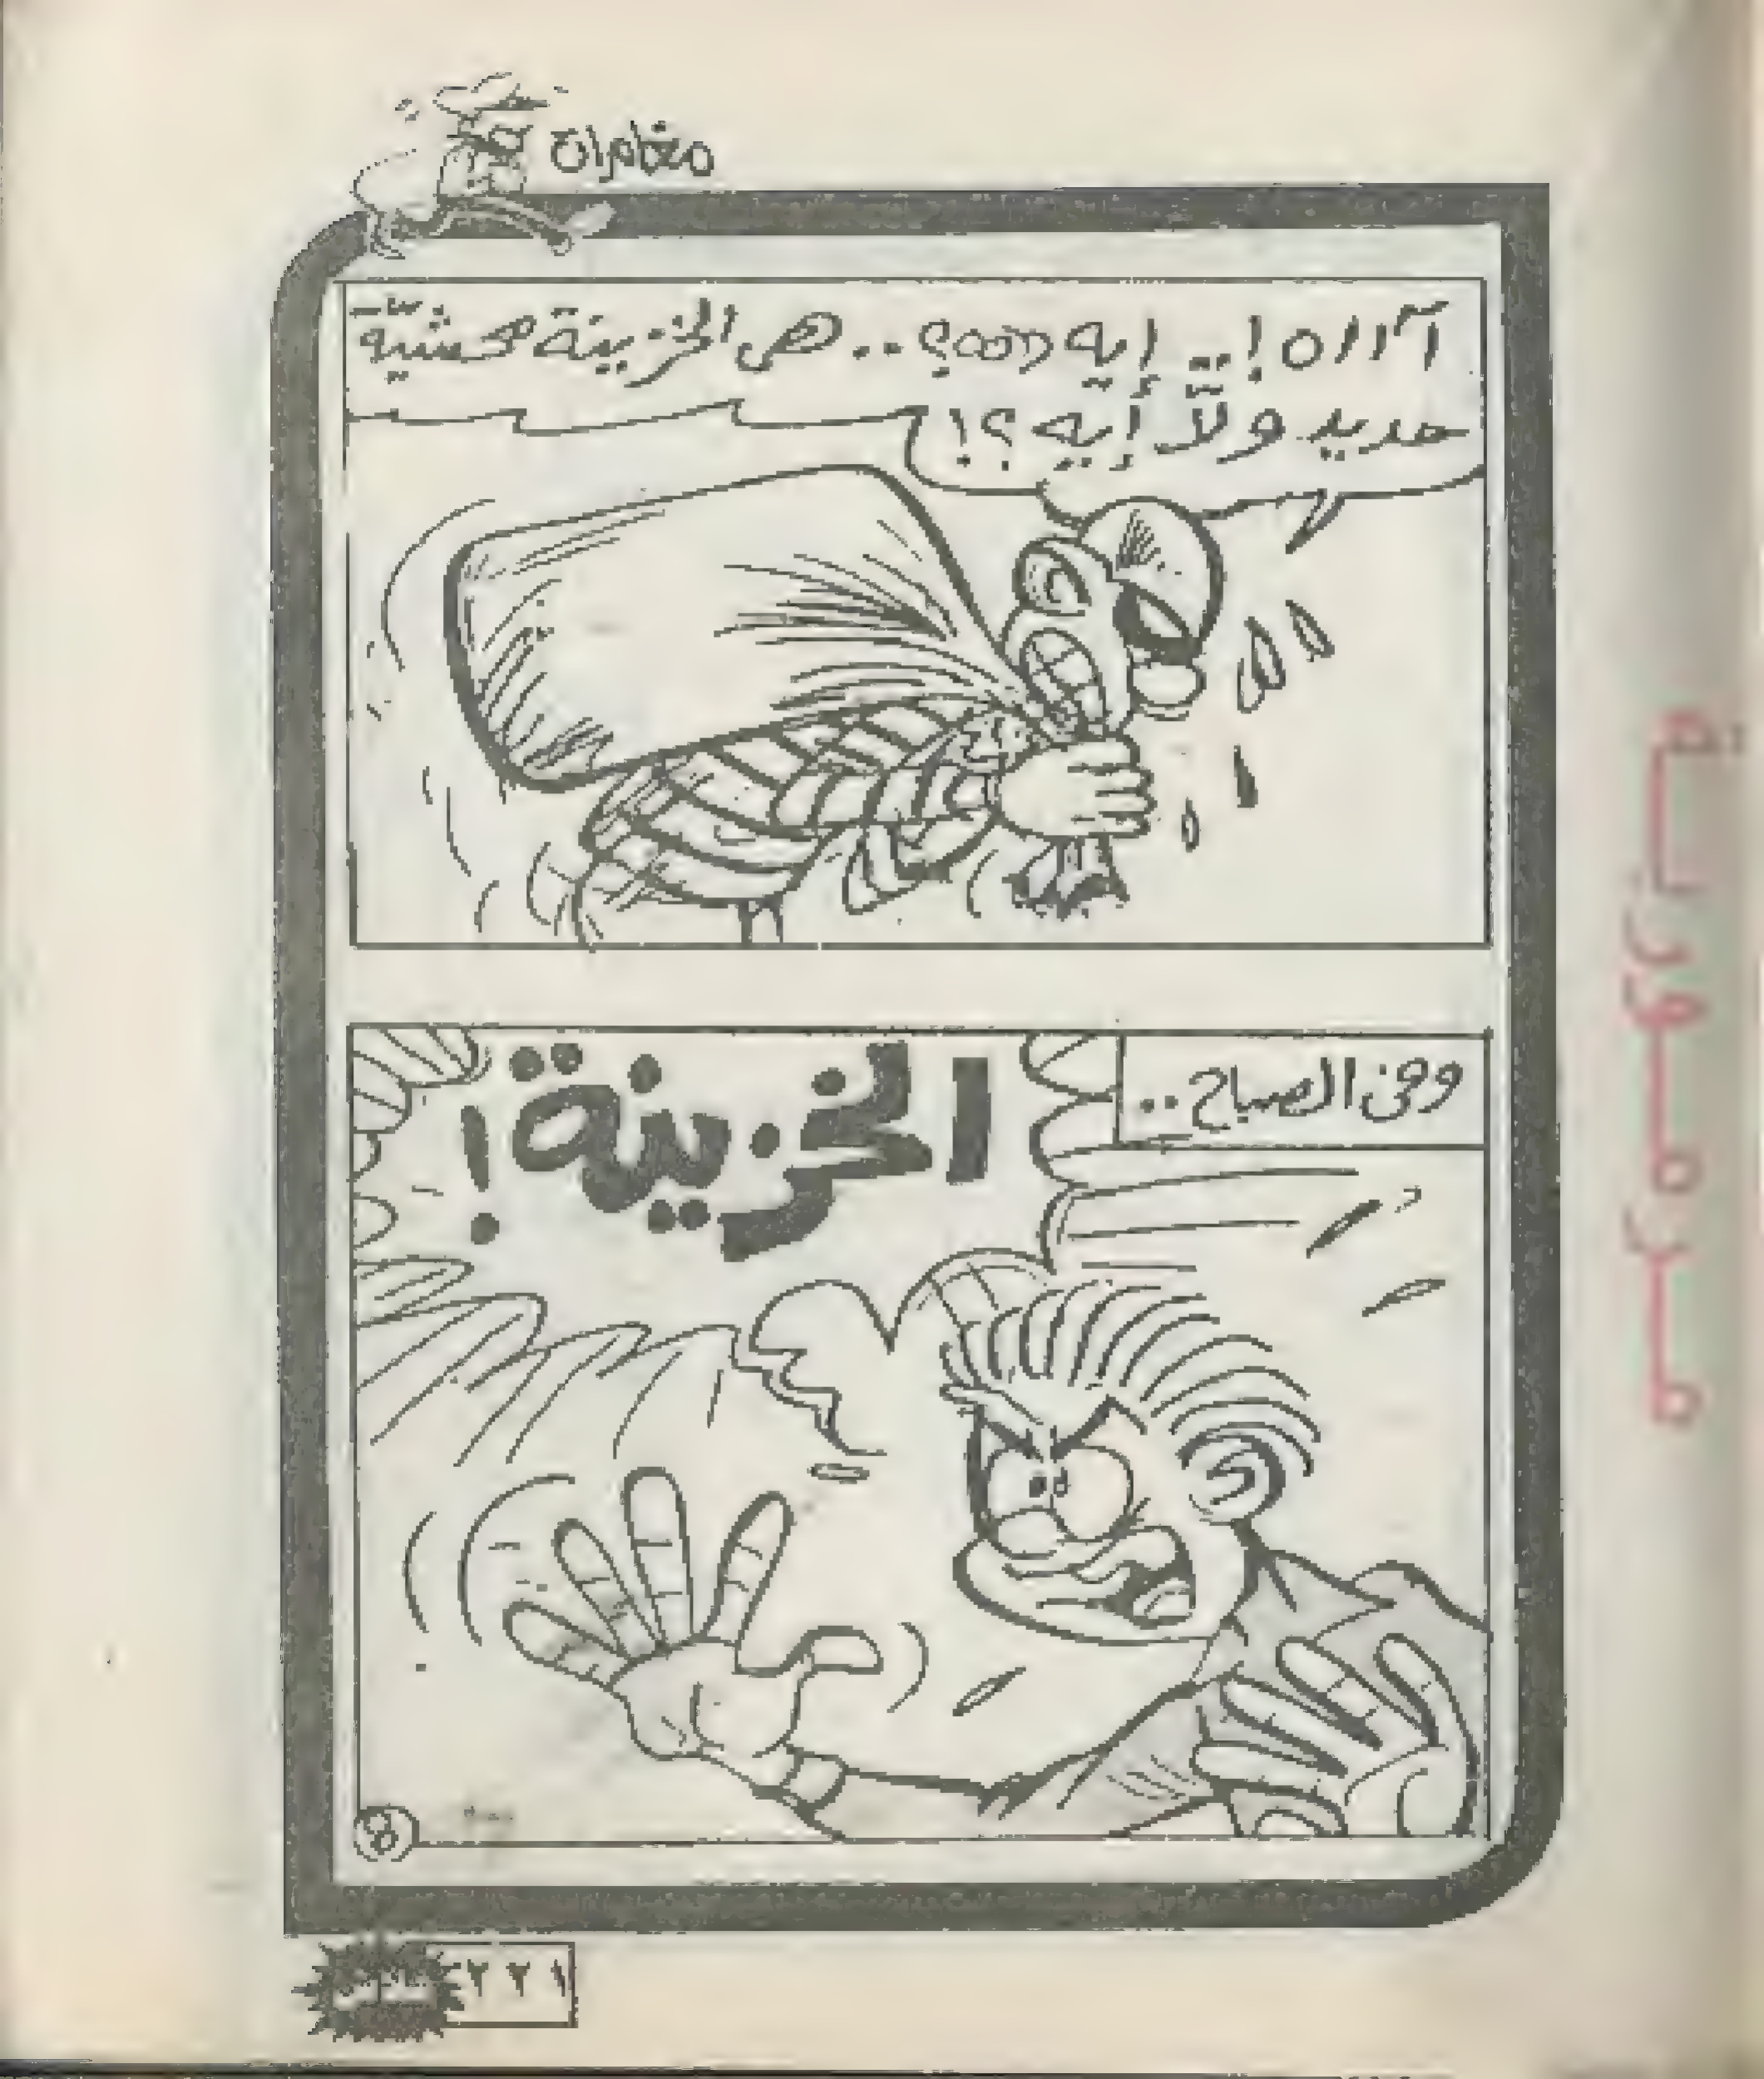 مغامرات
آ١١١ه!.. إيه ده؟.. هى الخزينة محشيّة
حديد ولاّ إيه؟!
وفى الصباح..
الخزينة!
8
٢٢١